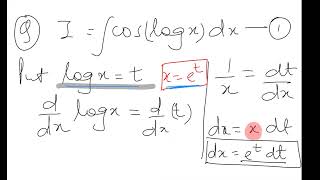 Q I = ∫cos(log x) dx — ①
Put log x = t x = e^t
1/x = dt/dx
d/dx log x = d/dx (t)
dx = x dt
dx = e^t dt